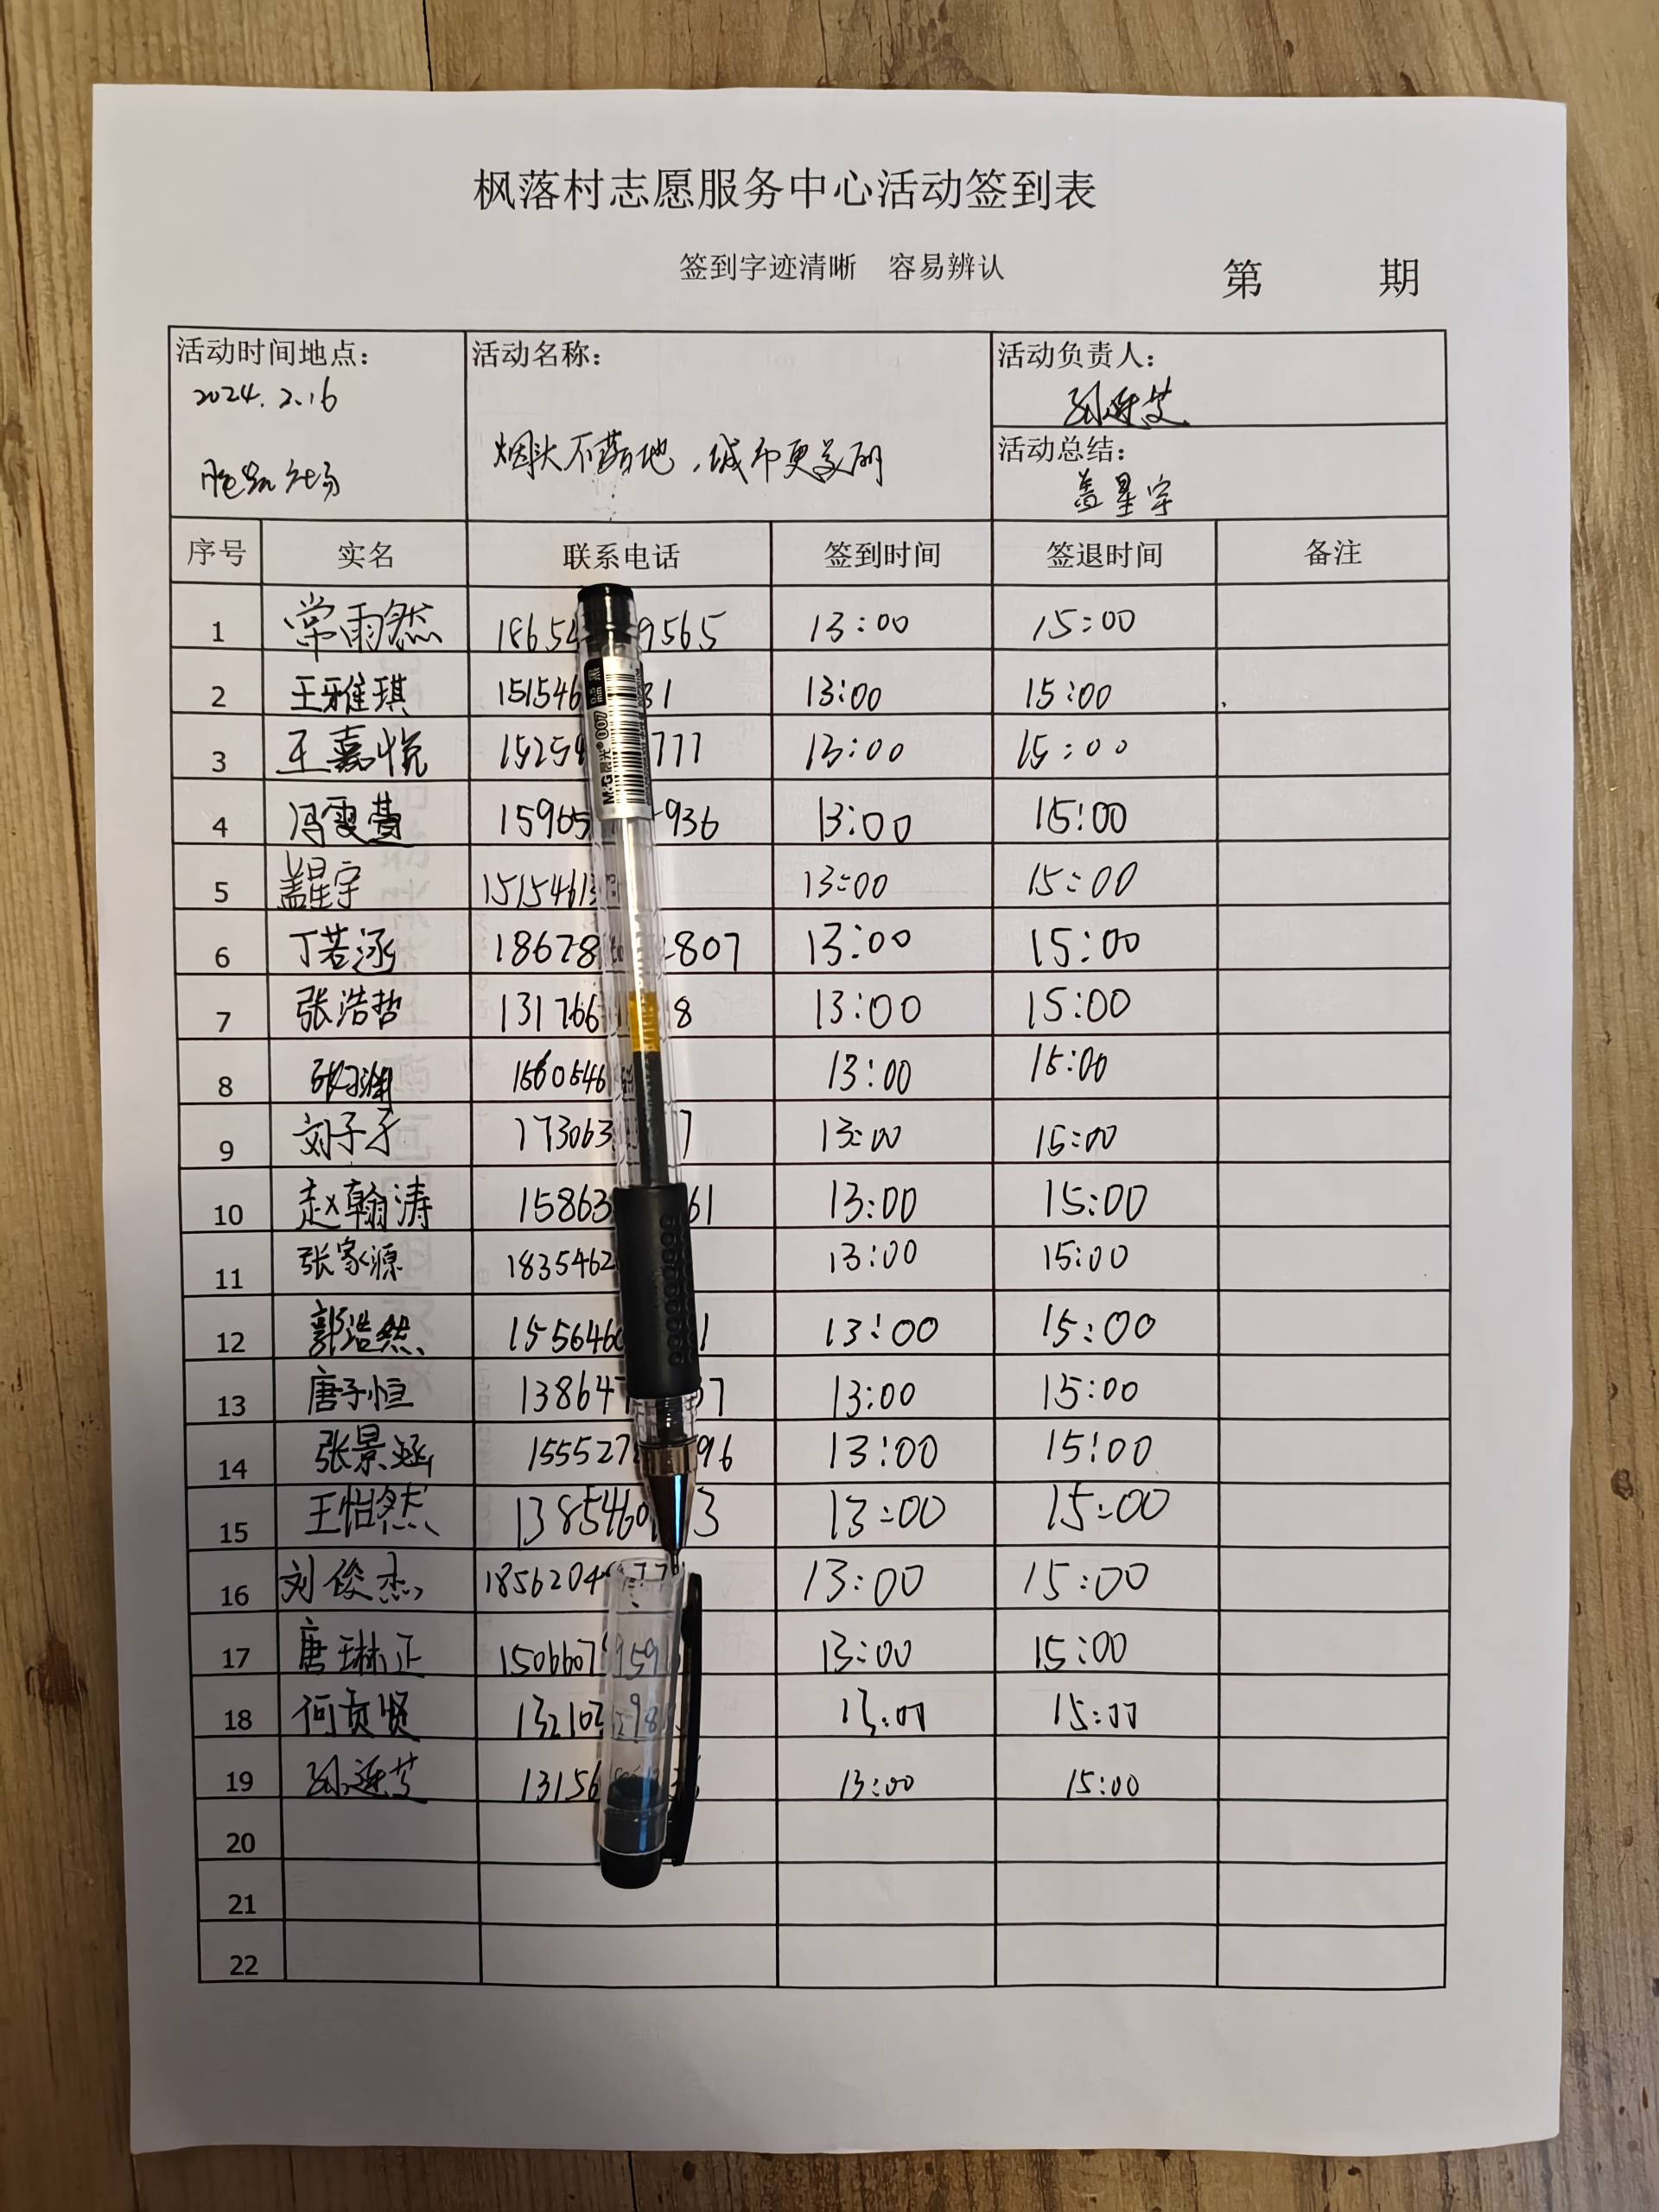 枫落村志愿服务中心活动签到表
签到字迹清晰 容易辨认
第 期
活动时间地点: 活动名称: 活动负责人:
2024.2.16
孙延艾
烟头不落地,城市更美丽
活动总结:
广场
盖星宇
序号 实名 联系电话 签到时间 签退时间 备注
1 常雨然 1865 9565 13:00 15:00
2 王雅琪 151546 31 13:00 15:00
3 王嘉悦 15254 777 13:00 15:00
4 冯雯萱 15965 936 13:00 15:00
5 盖星宇 1515461 13:00 15:00
6 丁若涵 18678 807 13:00 15:00
7 张浩哲 131766 8 13:00 15:00
8 1560546 13:00 15:00
9 刘子 173063 7 13:00 15:00
10 赵翰涛 15863 61 13:00 15:00
11 张家源 1835462 13:00 15:00
12 郭浩然 1556460 1 13:00 15:00
13 唐子恒 138647 37 13:00 15:00
14 张景涵 155527 96 13:00 15:00
15 王怡然 1385460 3 13:00 15:00
16 刘俊杰 1856204 77 13:00 15:00
17 唐琳正 1506607 959 13:00 15:00
18 何贡贤 132103 98 13:00 15:00
19 13156 13:00 15:00
20
21
22
M&G 晨光 007 黑 0.5mm